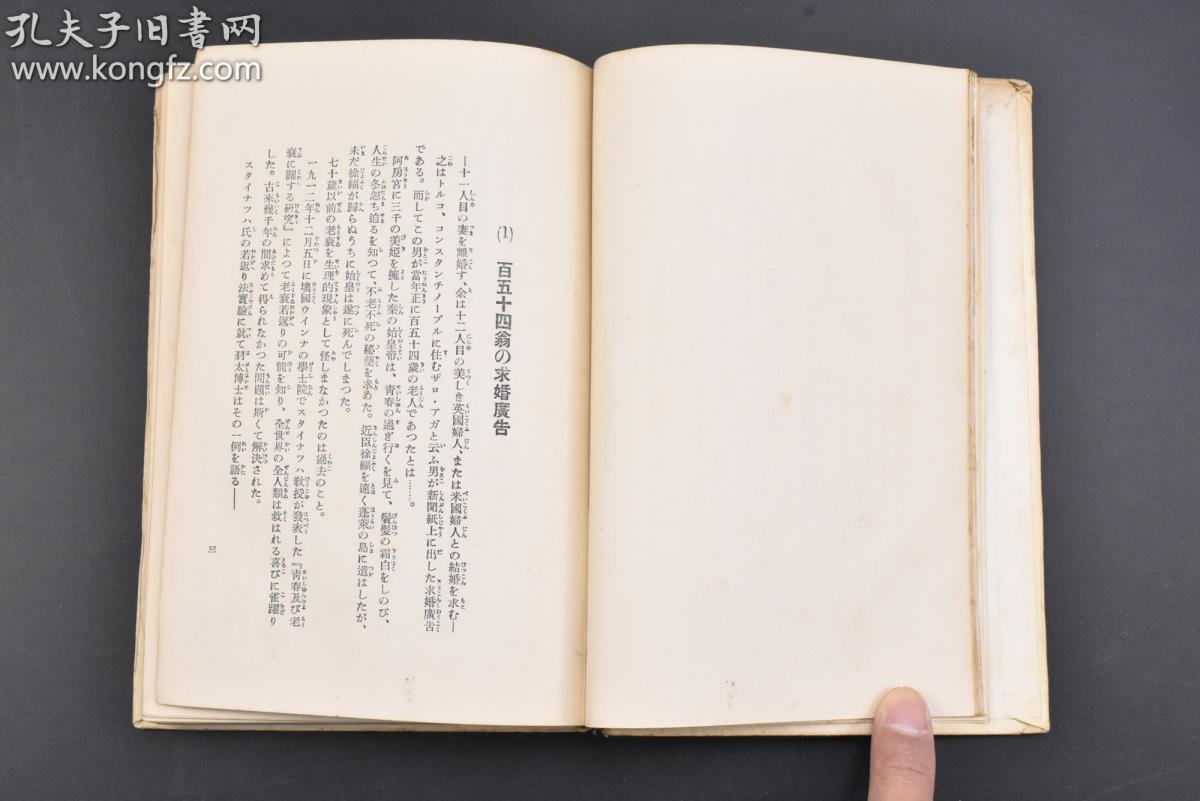 孔夫子旧书网
www.kongfz.com
(1) 百五十四翁の求婚廣告
―十一人目の妻を離婚す、余は十二人目の美しき英國婦人、または米國婦人との結婚を求む―
之はトルコ、コンスタンチノープルに住むザロ・アガと云ふ男が新聞紙上に出した求婚廣告
である。而してこの男が當年正に百五十四歳の老人であつたとは……。
阿房宮に三千の美姫を擁した秦の始皇帝は、靑春の過ぎ行くを見て、鬢髮の霜白をしのび、
人生の冬忽ち迫るを知つて、不老不死の秘藥を求めた。近臣徐福を遠く蓬萊の島に遣はしたが、
未だ徐福が歸らぬうちに始皇は遂に死んでしまつた。
七十歳以前の老衰を生理的現象として怪しまなかつたのは過去のこと。
一九一二年十二月五日に墺國ウインナの學士院でスタイナツハ敎授が發表した『靑春及び老
衰に關する硏究』によつて老衰若返りの可能を知り、全世界の全人類は救はれる喜びに雀躍り
した。古來幾千年の間求めて得られなかつた問題は斯くて解決された。
スタイナツハ氏の若返り法實驗に就て羽太博士はその一例を語る―